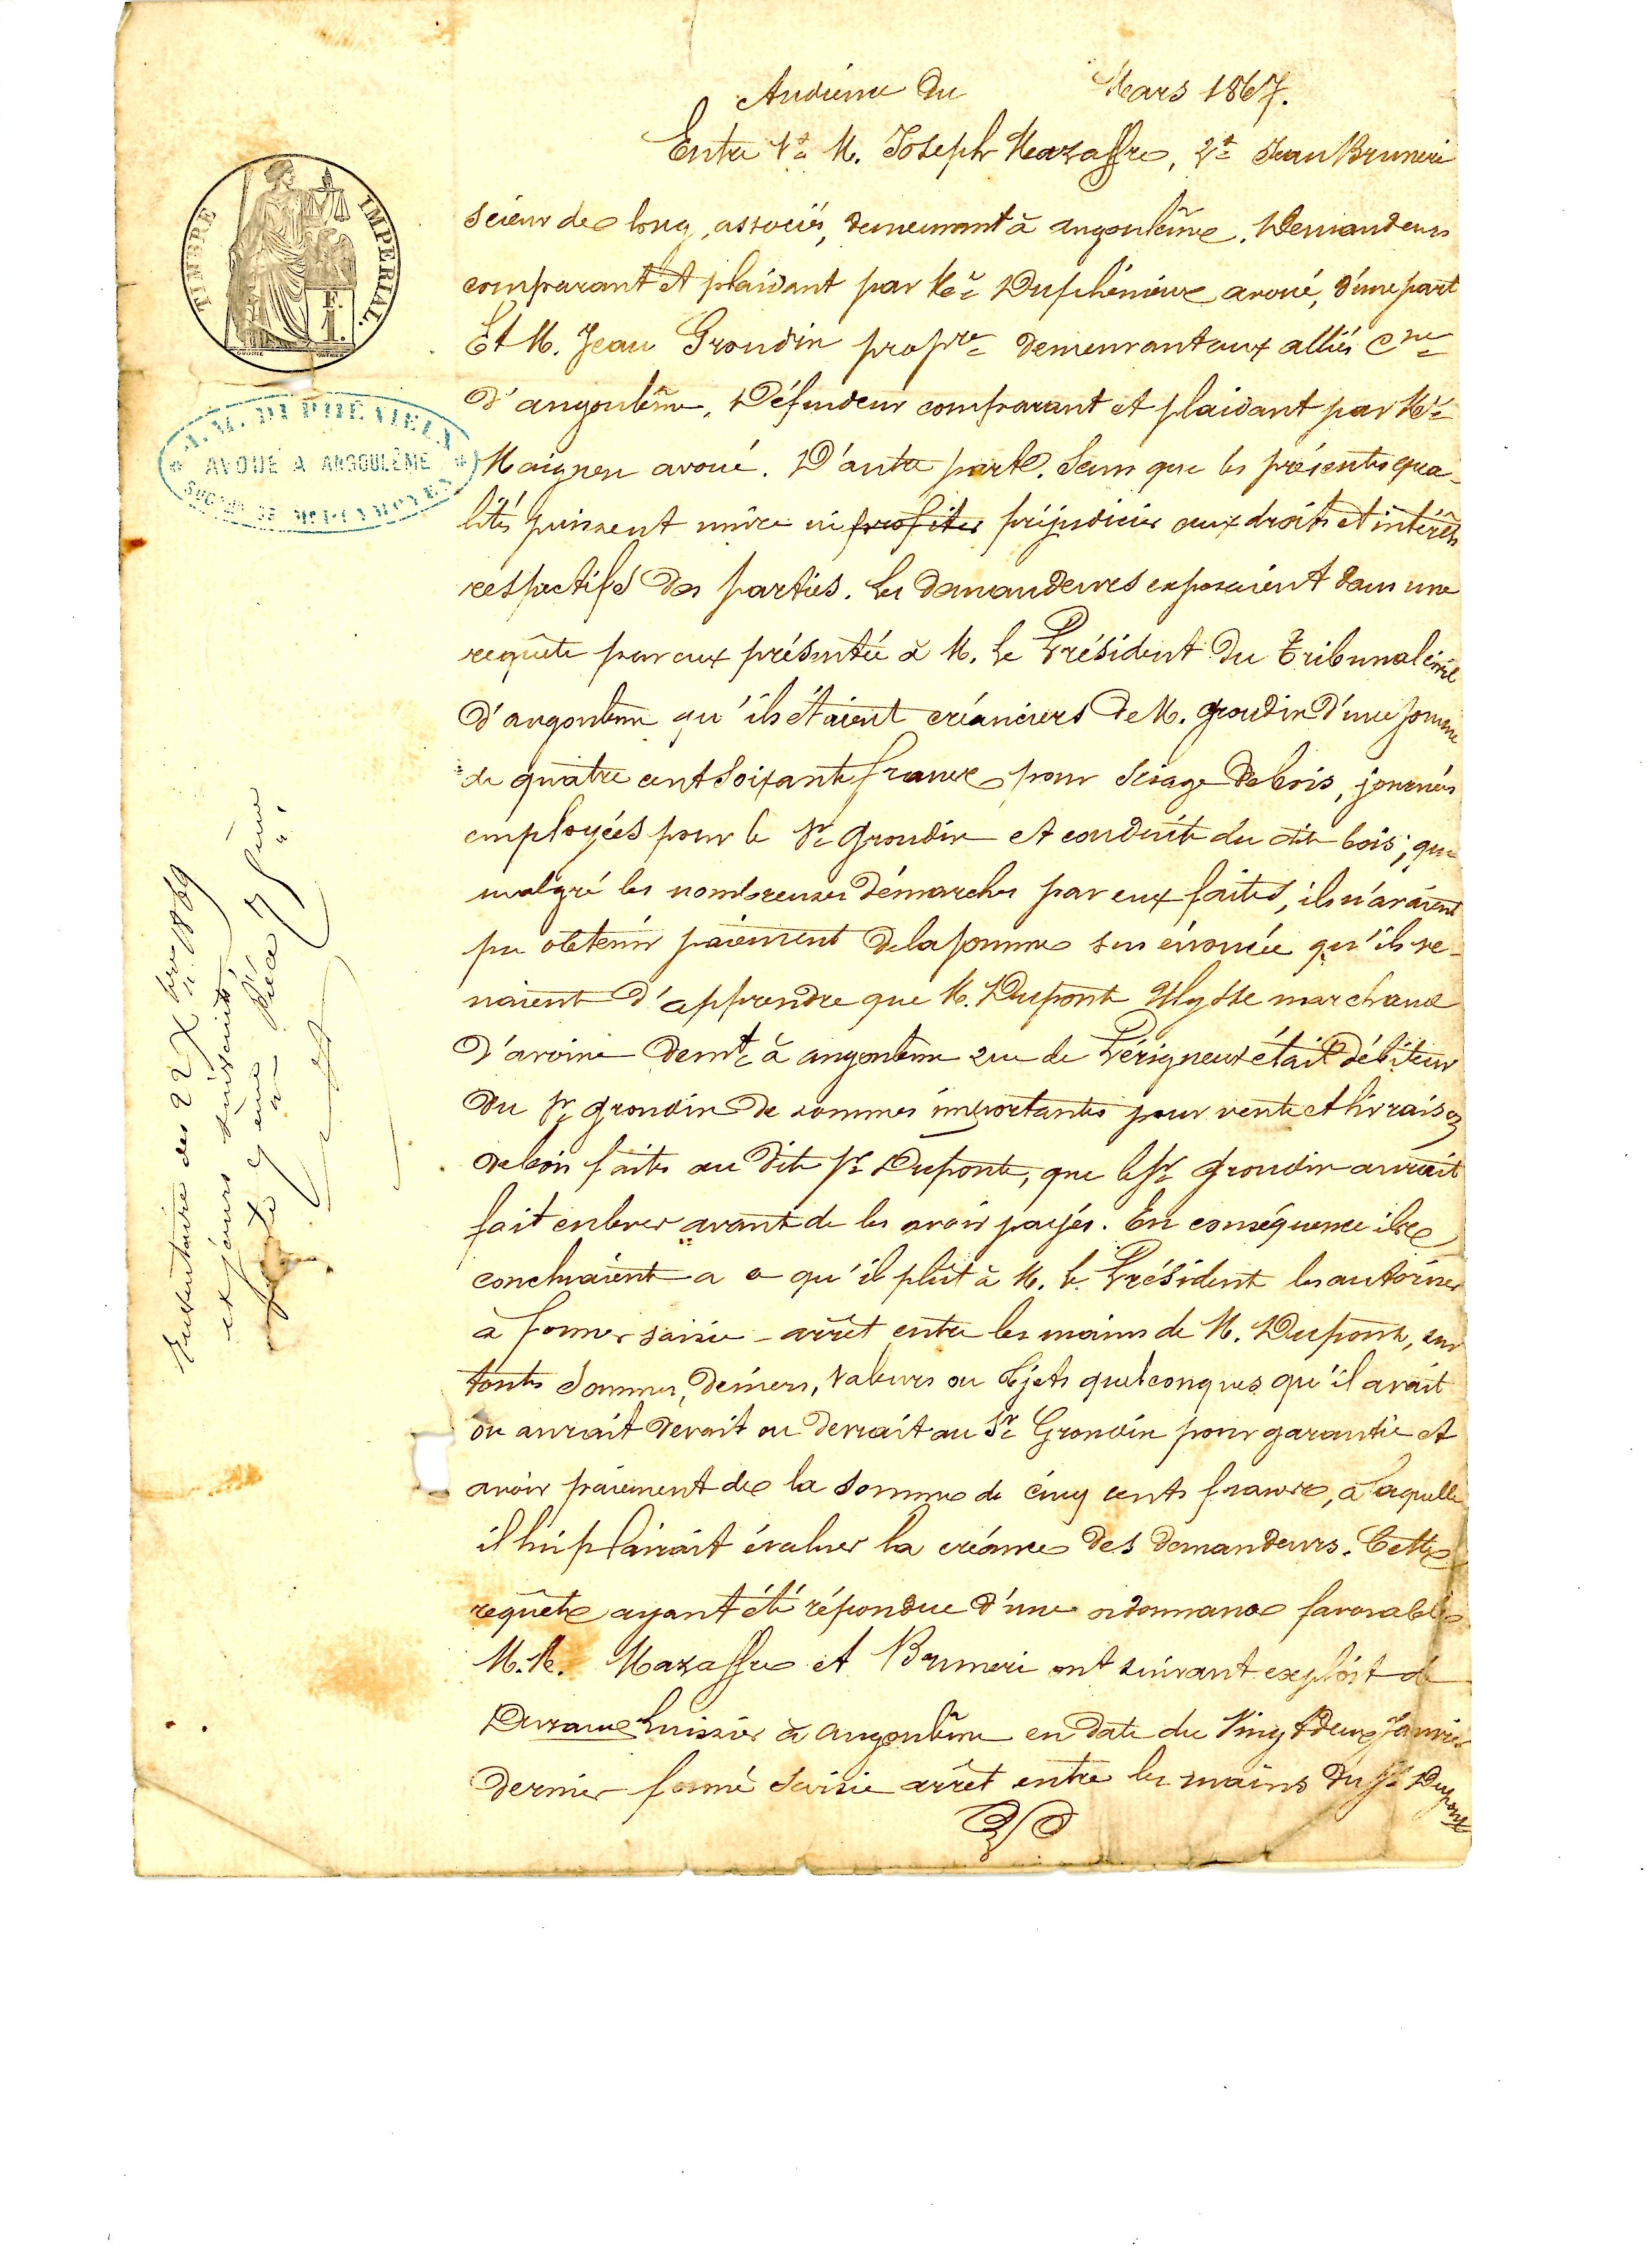 Audience du Mars 1867.
Entre 1° M. Joseph Mazaffre, 2° Jean Bruneri
scieur de long, associés, demeurant à angoulême, Demandeurs
comparant et plaidant par Me Duphénieux avoué, d'une part
Et M. Jean Grondin propre demeurant aux alliés Cne
d'angoulême, Défendeur comparant et plaidant par Me
Maignen avoué. D'autre part. Sans que les présentes qua-
lités puissent nuire ni profiter préjudicier aux droits et intérêts
respectifs des parties. les demandeurs exposaient dans une
requête par eux présentée à M. le Président du Tribunal civil
d'angoulême qu'ils étaient créanciers de M. Grondin d'une somme
de quatre cent soixante francs pour sciage de bois, journées
employées pour le Sr Grondin et conduite du dit bois; que
malgré les nombreuses démarches par eux faites, ils n'avaient
pu obtenir paiement de la somme sus énoncée qu'ils ve-
naient d'apprendre que M. Dupont Ulysse marchand
d'avoine demt à angoulême rue de Périgueux était débiteur
du Sr Grondin de sommes importantes pour vente et livraison
de bois faites au dit Sr Dupont, que le Sr Grondin aurait
fait enlever avant de les avoir payés. En conséquence ils
concluaient a ce qu'il plût à M. le Président les autoriser
à former saisie-arrêt entre les mains de M. Dupont, sur
toutes sommes, deniers, valeurs ou objets quelconques qu'il avait
ou aurait devait ou devrait au Sr Grondin pour garantie et
avoir paiement de la somme de cinq cents francs, à laquelle
il lui plairait évaluer la créance des demandeurs. Cette
requête ayant été répondue d'une ordonnance favorable
M.M. Mazaffre et Bruneri ont suivant exploit de
huissier à angoulême en date du vingt deux Janvier
dernier formé saisie arrêt entre les mains du Sr Dupont
TIMBRE IMPERIAL.
F.
1.
A. M. DUPHENIEUX
AVOUÉ A ANGOULÊME
des 22 Xbre 1869
et jours suivants
pièce